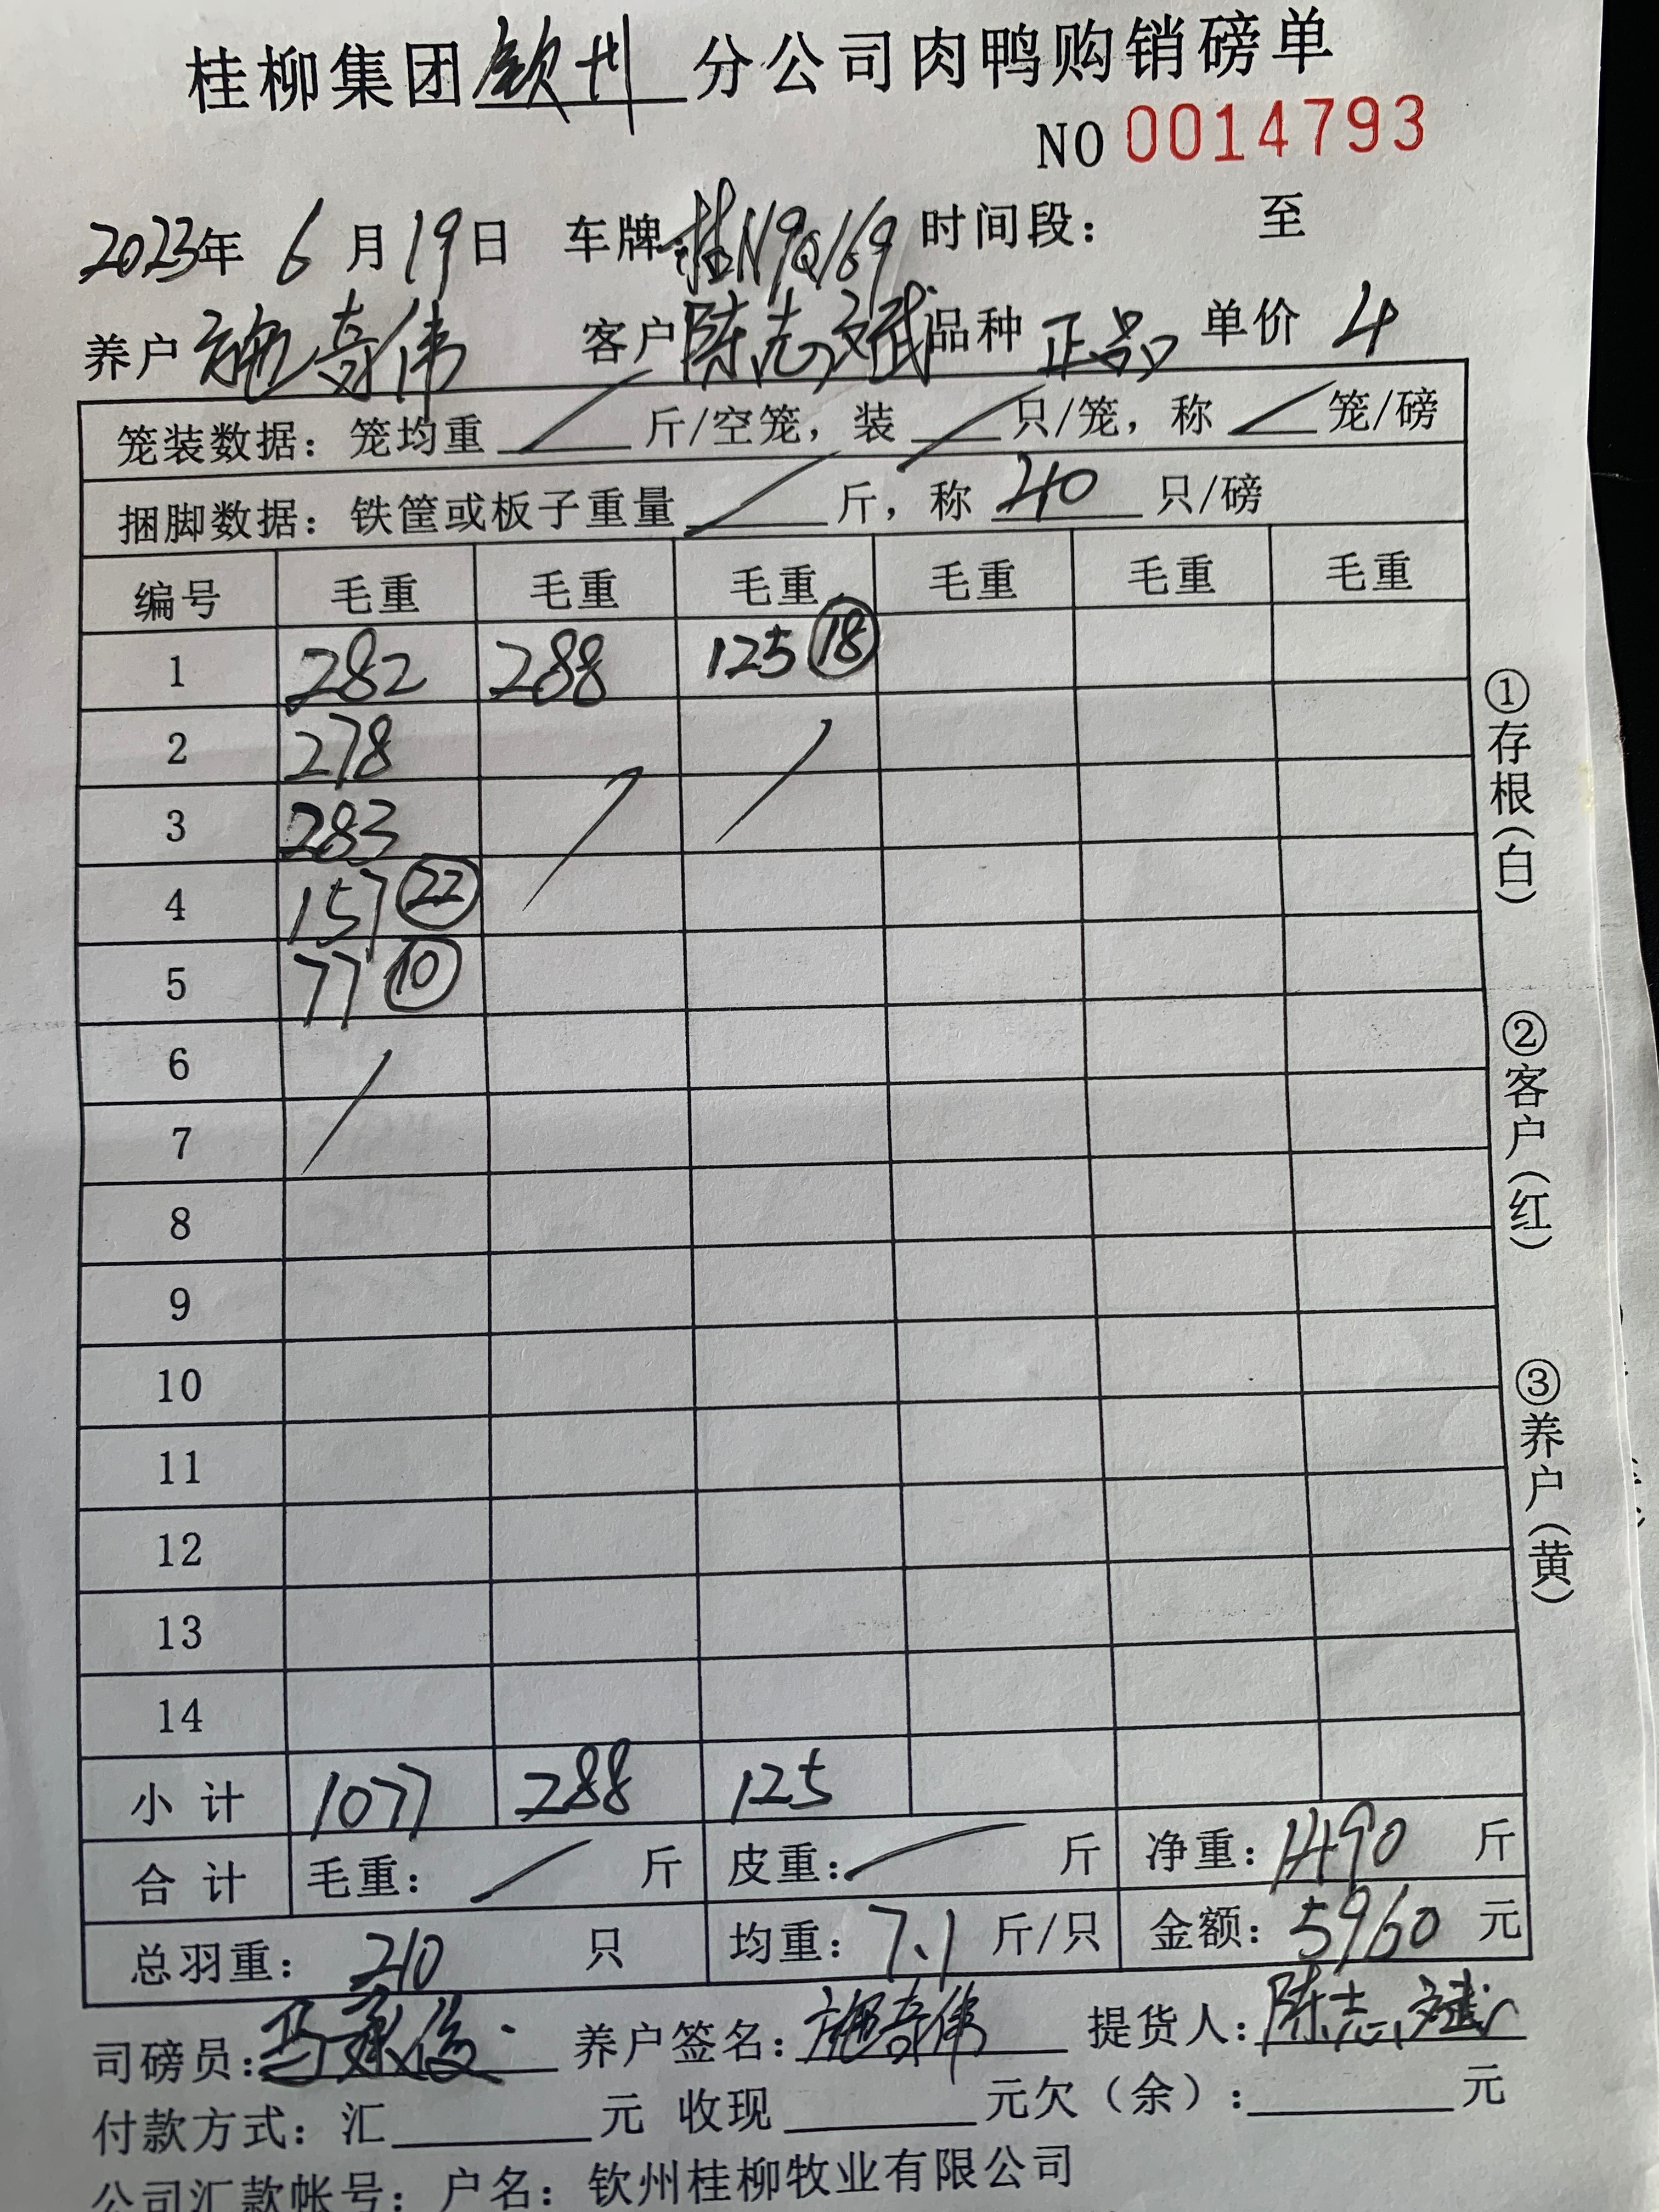 桂柳集团钦州分公司肉鸭购销磅单
NO 0014793
2023年 6 月 19 日 车牌:桂N9Q169 时间段: 至
养户 施奇伟 客户 陈志斌 品种 正品 单价 4
笼装数据: 笼均重 / 斤/空笼, 装 / 只/笼, 称 / 笼/磅
捆脚数据: 铁筐或板子重量 / 斤, 称 40 只/磅
编号 毛重 毛重 毛重 毛重 毛重 毛重
1 282 288 125 ⑱
2 278
3 283
4 157 ㉒
5 77 ⑩
6
7
8
9
10
11
12
13
14
小计 1077 288 125
合计 毛重: / 斤 皮重: / 斤 净重: 1490 斤
总羽重: 210 只 均重: 7.1 斤/只 金额: 5960 元
司磅员: 养户签名: 施奇伟 提货人: 陈志斌
付款方式: 汇 元 收现 元欠(余): 元
公司汇款帐号: 户名: 钦州桂柳牧业有限公司
①存根(白)
②客户(红)
③养户(黄)